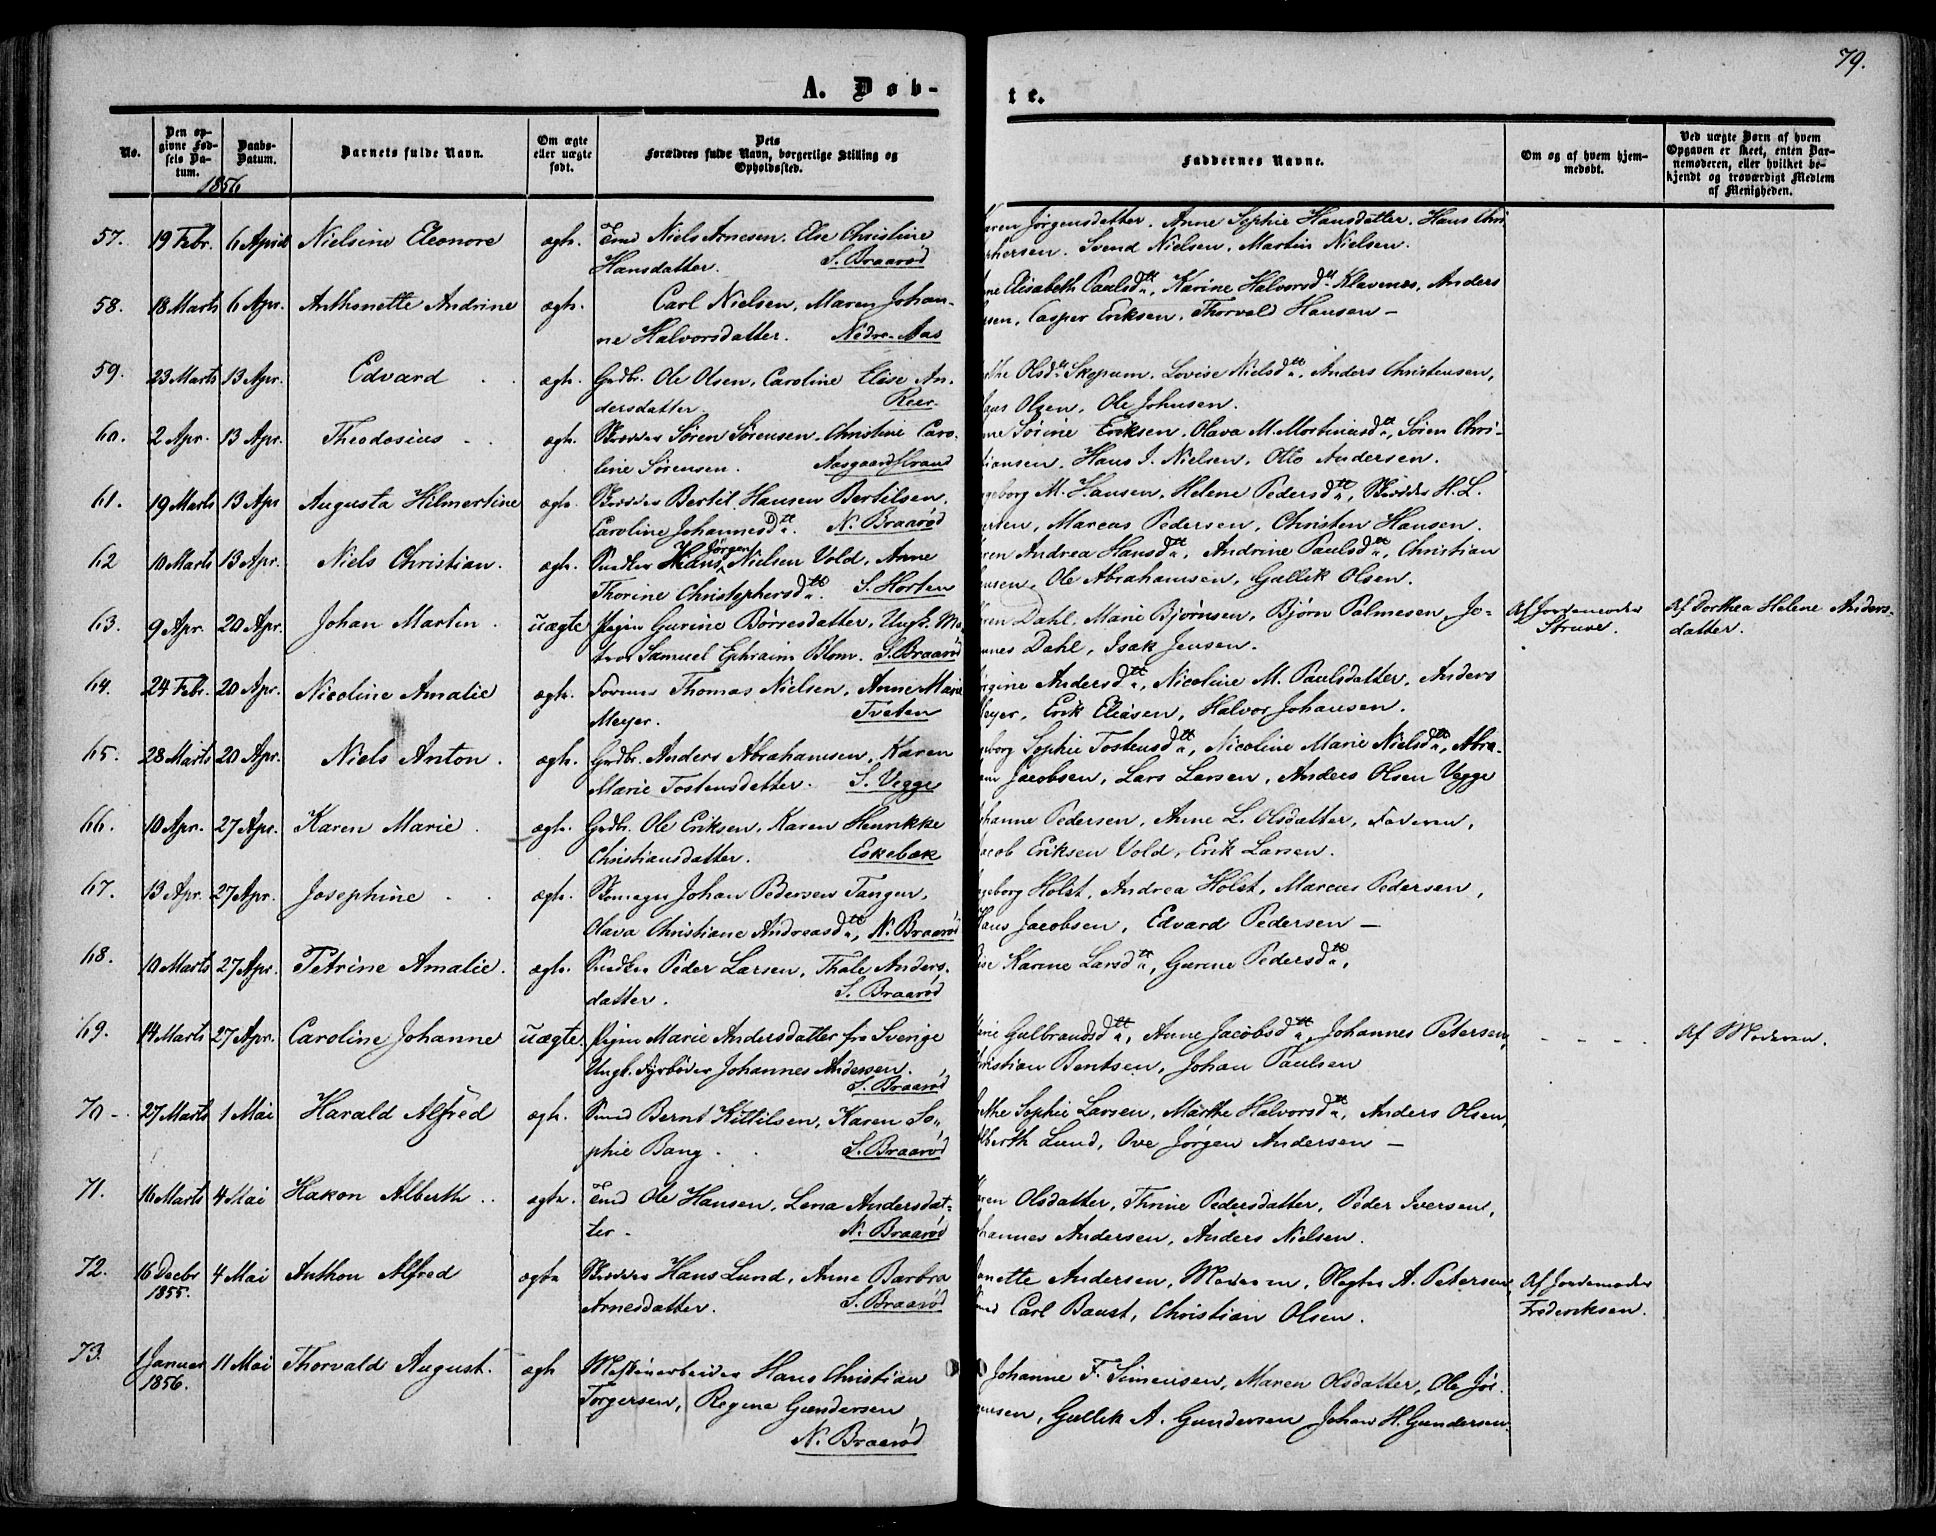 79.
A. Døb-
te.
No.
Den op-
givne Fød-
sels Da-
tum.
Daabs-
Datum.
Barnets fulde Navn.
Om ægte
eller uægte
født.
Dets
Forældres fulde Navn, borgerlige Stilling og
Opholdssted.
Faddernes Navne.
Om og af hvem hjem-
medøbt.
Ved uægte Børn af hvem
Opgaven er skeet, enten Bar-
nemoderen, eller hvilket be-
kjendt og troværdigt Medlem
af Menigheden.
1856
57. 19 Febr. 6 April Nielsine Eleonore ægte. Tmd Niels Arnesen. Else Christine
Hansdatter. S. Braarød
aren Jørgensdatter. Anne Sophie Hansdatter. Hans Chri
phersen. Svend Nielsen. Martin Nielsen.
58. 18 Marts 6 Apr. Anthonette Andrine ægte. Carl Nielsen, Maren Johan-
ne Halvorsdatter. Nedre-Aas
ne Elisabeth Paulsdtt, Karine Halvorsdtt Klavenæs, Anders
sen, Casper Eriksen, Thorvald Hansen -
59. 23 Marts 13 Apr. Edvard ægte. Grdbr. Ole Olsen, Caroline Elise An-
dersdatter. Reer.
the Olsdtt Skopum. Lovise Nielsdtt, Anders Christensen,
Olsen, Ole Johnsen.
60. 2 Apr. 13 Apr. Theodosius ægte. Skrædder Søren Sørensen. Christine Caro-
line Sørensen. Aasgaardstrand
ne Sørine Eriksen, Olava M. Mortinusdtt, Søren Chri-
tiansen. Hans J. Nielsen, Otto Andersen.
61. 19 Marts 13 Apr Augusta Hilmertine ægte. Skrædder Bertil Hansen Bertilsen,
Caroline Johannesdtt. N. Braarød
ngeborg M. Hansen, Helene Pedersdtt, Skrædder H. L.
Marcus Pedersen, Christen Hansen.
62 10 Marts 13 Apr. Niels Christian. ægte. Snedker Hans Jørgen Nielsen Vold, Anne
Thorine Christophersdtt. S. Horten
ren Andrea Hansdtt, Andrine Paulsdtt, Christian
Ole Abrahamsen, Gullik Olsen.
63. 9 Apr. 20 Apr. Johan Martin. uægte Pigen Gurine Børresdatter, Ungk. Ma-
tros Samuel Ephraim Blom. S. Braarød
ren Dahl, Marie Bjørnsen, Bjørn Palmesen, Jo-
nnes Dahl, Isak Jensen.
Af Jordemoder
Struve.
Af Dorthea Helene Anders-
datter.
64. 24 Febr. 20 Apr. Nicoline Amalie ægte. Former Thomas Nielsen, Anne Marie
Meyer. Tveten
rgine Andersdtt, Nicoline M. Paulsdatter, Anders
eyer, Erik Eliasen, Halvor Johansen.
65. 28 Marts 20 Apr. Niels Anton. ægte. Grdbr. Anders Abrahamsen, Karen
Marie Tostensdatter. S. Vegge
geborg Sophie Tostensdtt, Nicoline Marie Nielsdtt, Abra-
am Jacobsen, Lars Larsen, Anders Olsen Vegge
66. 10 Apr. 27 Apr. Karen Marie. ægte. Grdbr. Ole Eriksen, Karen Henrikke
Christiansdatter. Eskebæk
ohanne Pedersen, Anne L. Olsdatter, Faderen,
acob Eriksen Vold, Erik Larsen.
67. 13 Apr. 27 Apr. Josephine ægte. Skomager Johan Pedersen Tangen,
Olava Christiane Andreasdtt, N. Braarød
ngeborg Holst, Andrea Holst, Marcus Pedersen,
Hans Jacobsen, Edvard Pedersen -
68. 10 Marts 27 Apr. Petrine Amalie. ægte. Snedker Peder Larsen, Thale Anders-
datter. S. Braarød
ise Karine Larsdtt, Gurine Pedersdtt,
69. 14 Marts 27 Apr. Caroline Johanne uægte. Pigen Marie Andersdatter fra Sverige
Ungk. Fyrbøder Johannes Andersen.
S. Braarød
arie Gulbrandsdtt, Anne Jacobsdtt, Johannes Petersen,
hristian Bentsen, Johan Paulsen
Af Moderen.
70 - 27 Marts 1 Mai Harald Alfred ægte. Smed Bernt Kittilsen, Karen So-
phie Bang. S. Braarød
Sophie Larsen, Marthe Halvorsdtt, Anders Olsen,
lberth Lund, Ove Jørgen Andersen -
71. 16 Marts 4 Mai Hakon Alberth ægte. Tmd Ole Hansen, Lena Andersdat-
ter. N. Braarød
aren Olsdatter, Thrine Pedersdatter, Peder Iversen,
ohannes Andersen, Anders Nielsen.
72. 16 Decbr
1855. 4 Mai Anthon Alfred ægte Skrædder Hans Lund, Anne Barbra
Arnesdatter. S. Braarød
anette Andersen, Moderen, Slagter A. Petersen
Smed Carl Baust, Christian Olsen.
Af Jordemoder
Frederiksen.
73. 1 Januar
1856. 11 Mai Thorvald August. ægte Maskinarbeider Hans Christian
Torgersen, Regine Gundersen
N. Braarød
Johanne F. Simensen, Maren Olsdatter, Ole Jør-
gensen, Gullik A. Gundersen Johan H. Gundersen.